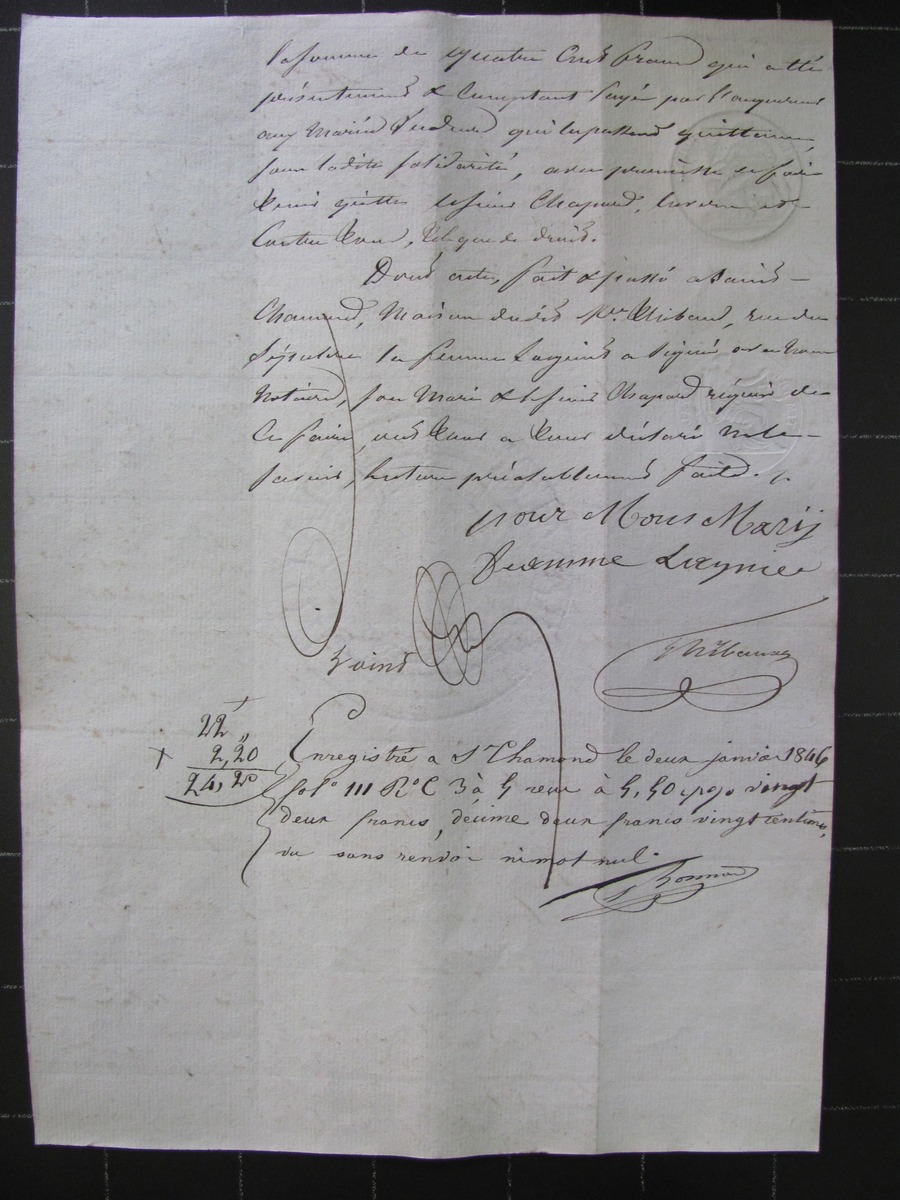 la somme de quatre cents francs qui a été
présentement & comptant payé par l'acquereur
aux mariés vendeurs qui lui passent quittance
sous ladite solidarité, avec promesse de faire
tenir quitte le sieur Chapard, envers et
contre tous, tels que de droit.
Dont acte, fait & passé a Saint-
Chamond, maison dudit Me. Thibaud, rue du
Sépulcre la femme Lagnier a signé avec nous
notaires, son mari & le sieur Chapard réquis de
ce faire, ont tous deux déclaré ne le
savoir, lecture préalablement faite.
pour Mous Marij
Jeannne Lagnier
Thibaud
22 "
2,20
24,20
Enregistré a St Chamond le deux janvier 1846
fol° 111 R° C 3 à 5 reçu à 5,50 p % vingt
deux francs, décime deux francs vingt centimes,
vu sans renvoi ni mot nul.